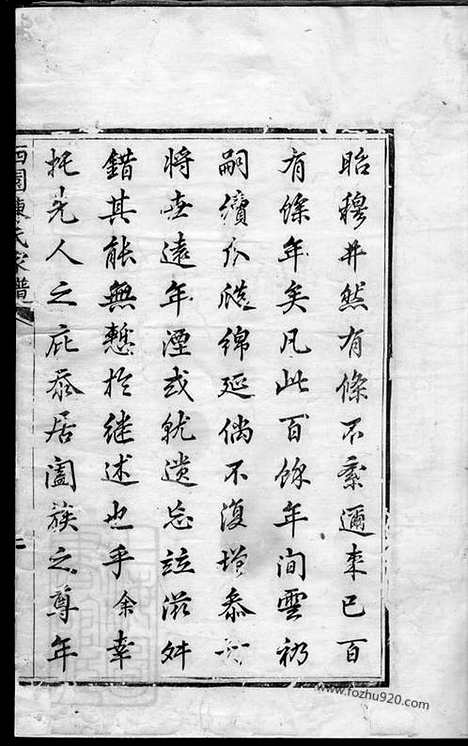 昭穆井然有條不紊邇來已百
有餘年矣凡此百餘年間雲礽
嗣續瓜瓞綿延倘不復增恭
將世遠年湮或就遺忘並滋舛
錯其能無愬於继述也乎余幸
托先人之庇忝居闔族之尊年
西園陳氏家譜
www.fozhu920.com